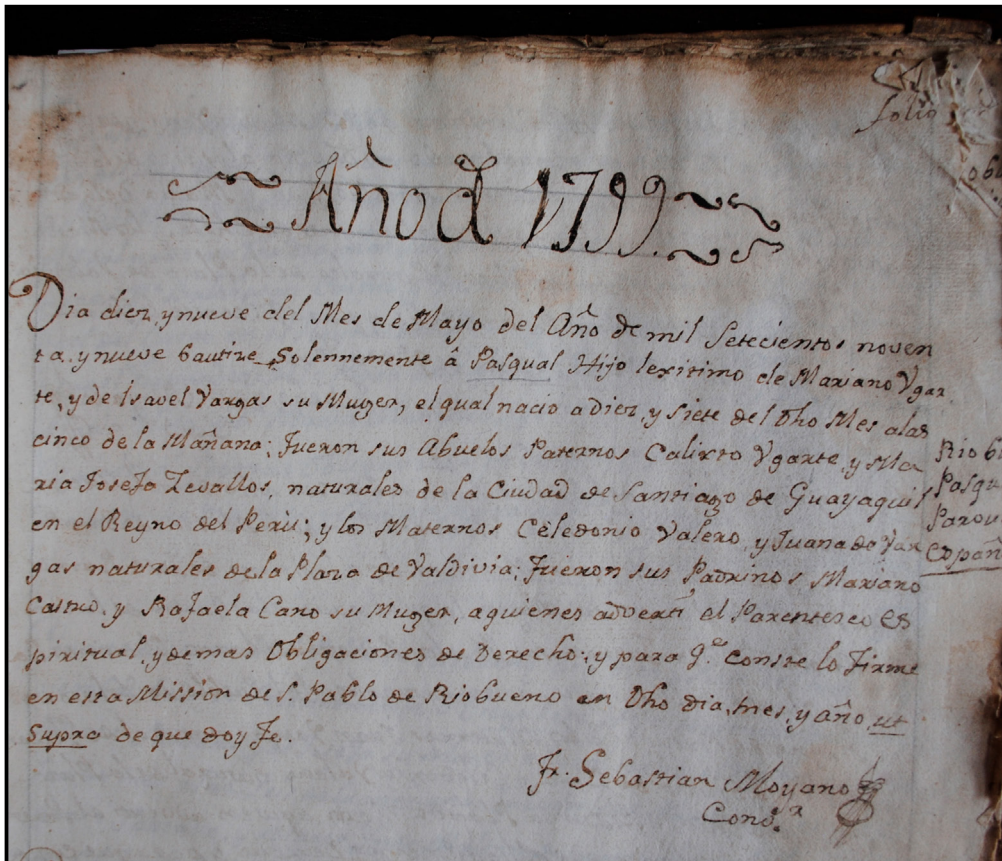 folio
Año d 1799.
Dia diez, y nueve del Mes de Mayo del Año de mil Setecientos noven
ta, y nueve bautize Solennemente â Pasqual Hijo lexitimo de Mariano Ygar
te, y de Isavel Vargas su Muger, el qual nacio a diez, y siete del Dho Mes alas
cinco de la Mañana; Fueron sus Abuelos Paternos Calixto Ygarte, y Ma
ria Josefa Zevallos, naturales de la Ciudad de Santiago de Guayaquil
en el Reyno del Perù; y los Maternos Celedonio Valero, y Juana de Var
gas naturales de la Plaza de Valdivia; Fueron sus Padrinos Mariano
Castro, y Rafaela Cano su Muger, a quienes adverti el Parentesco es
piritual, y demas Obligaciones de Derecho; y para q.e conste lo Firme
en esta Mission de S. Pablo de Riobueno en Dho dia, mes, y año, ut
Supra de que doy Fe.
Fr. Sebastian Moyano
Con.or
Riob
Pasqu
Parou
Españ